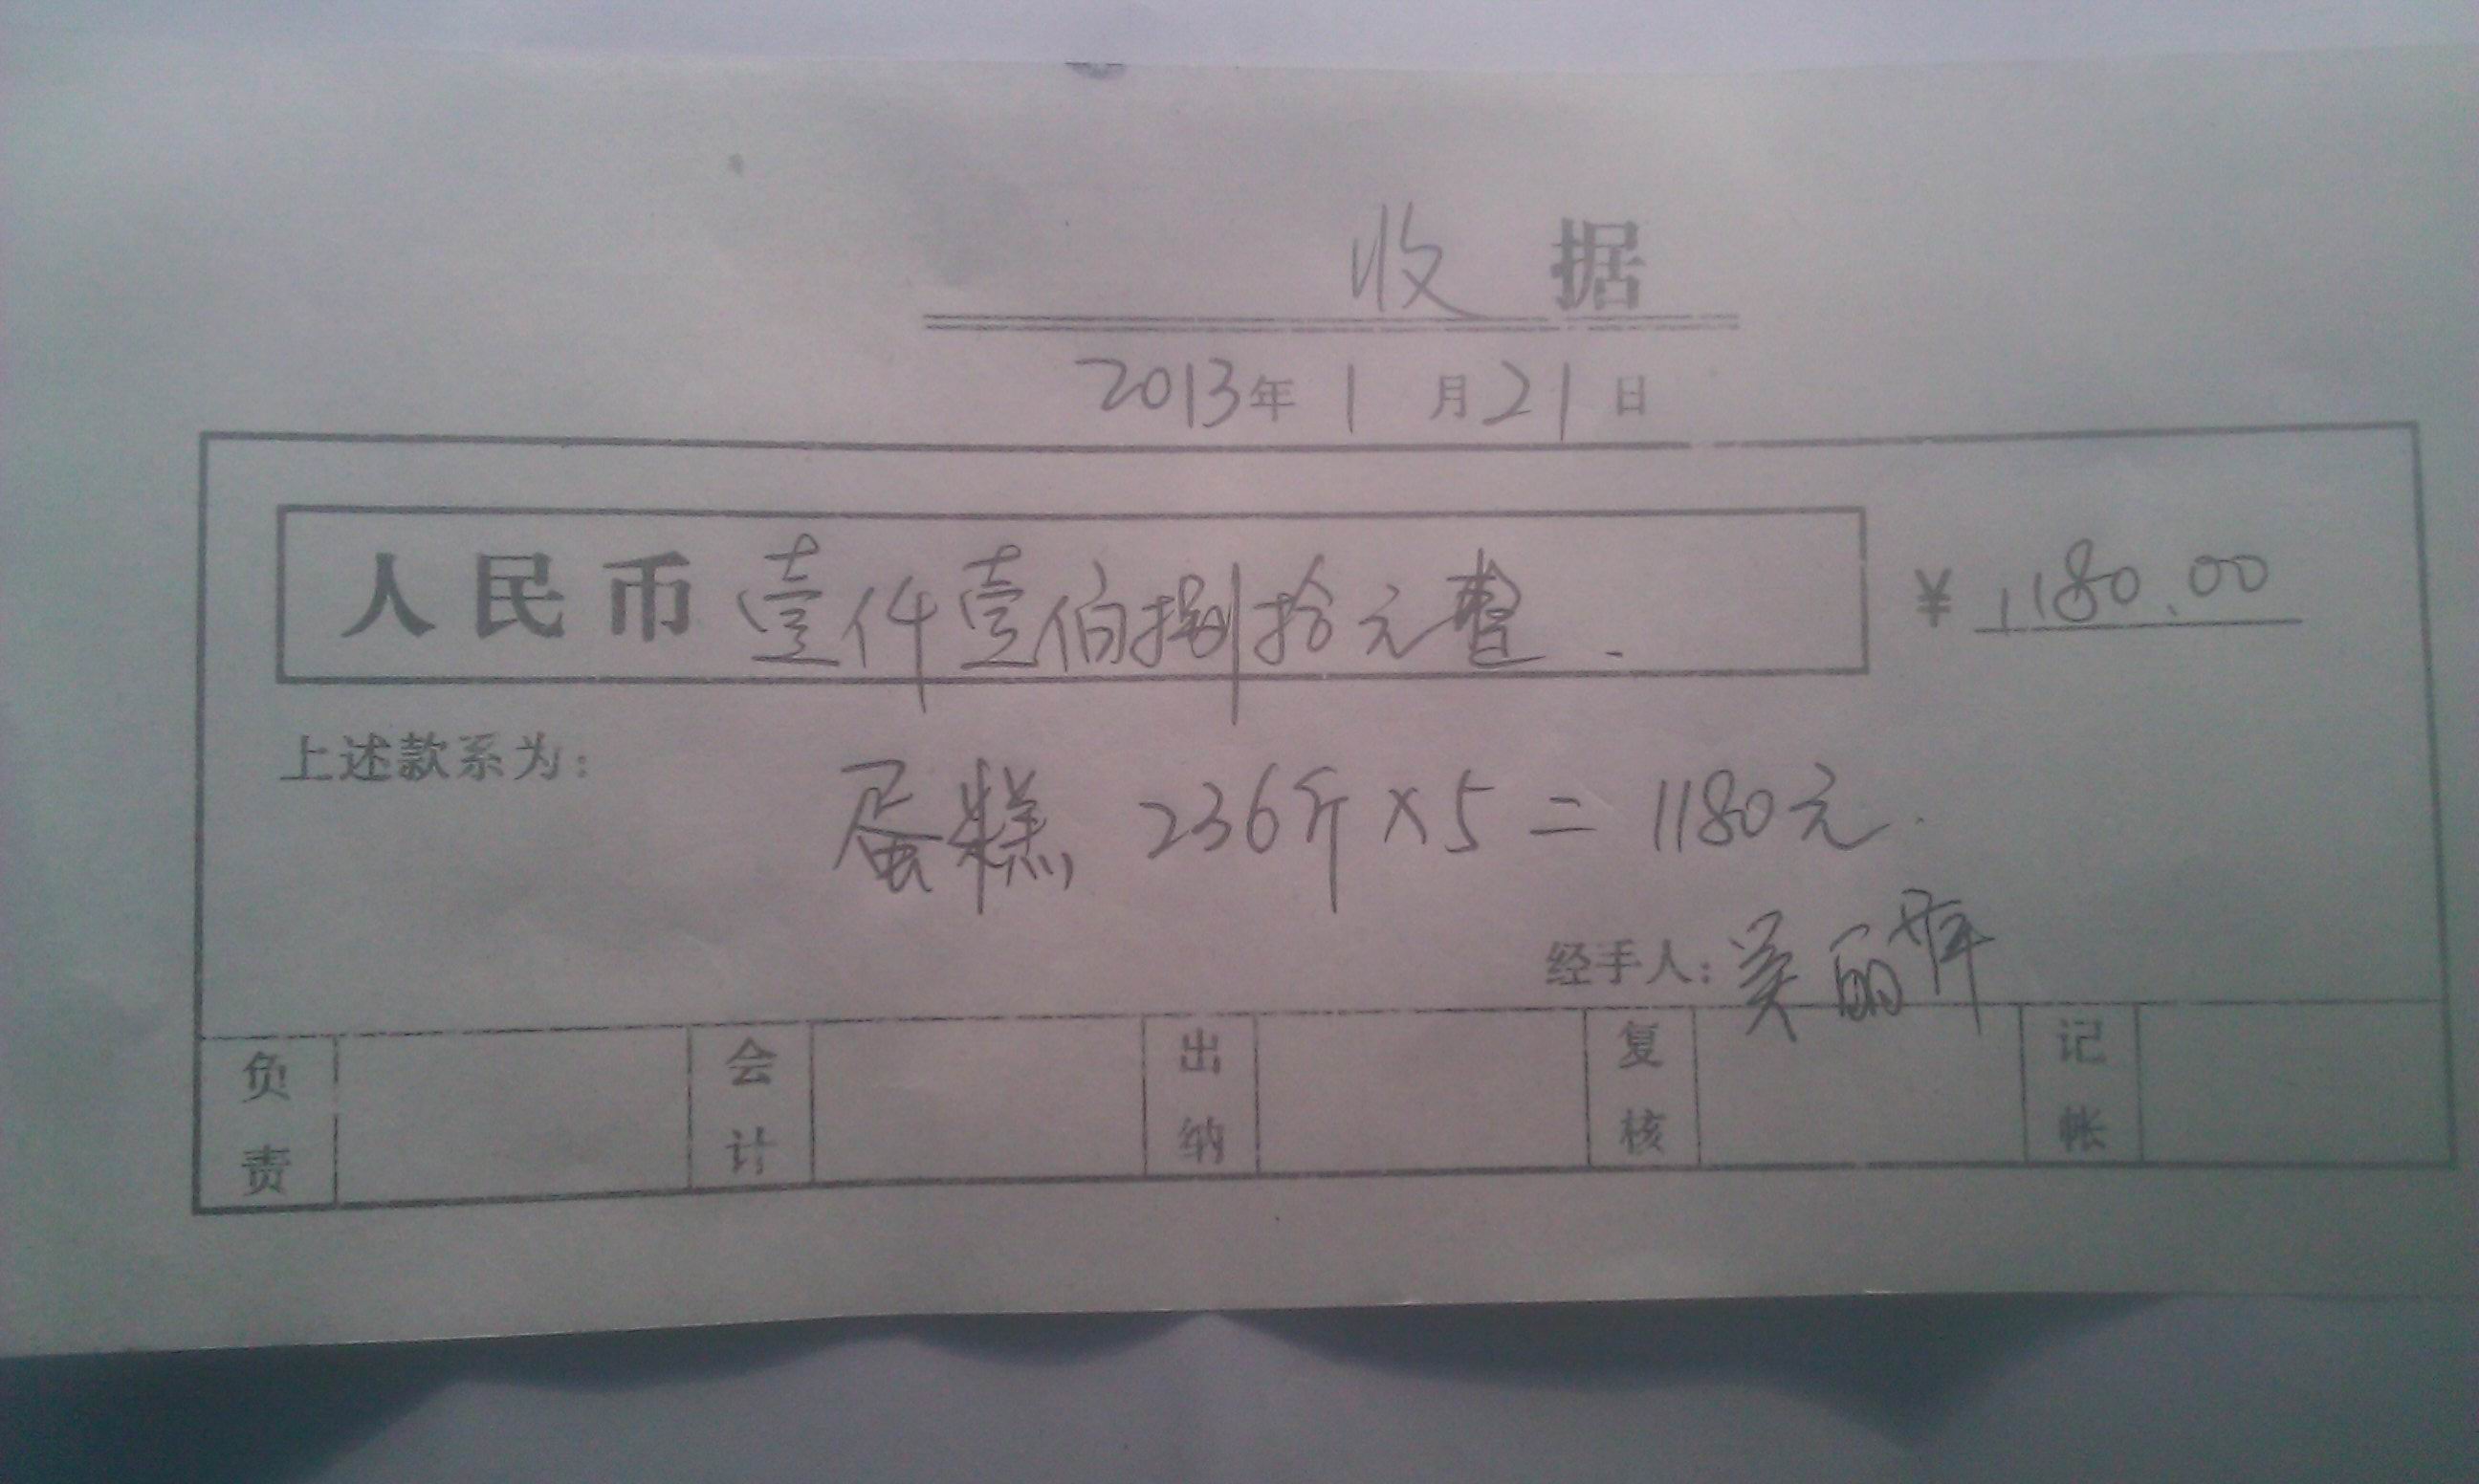 收据
2013年1月21日
人民币壹仟壹佰捌拾元整. ¥1180.00
上述款系为: 蛋糕 236斤×5=1180元.
经手人: 吴丽萍
负责 会计 出纳 复核 记帐